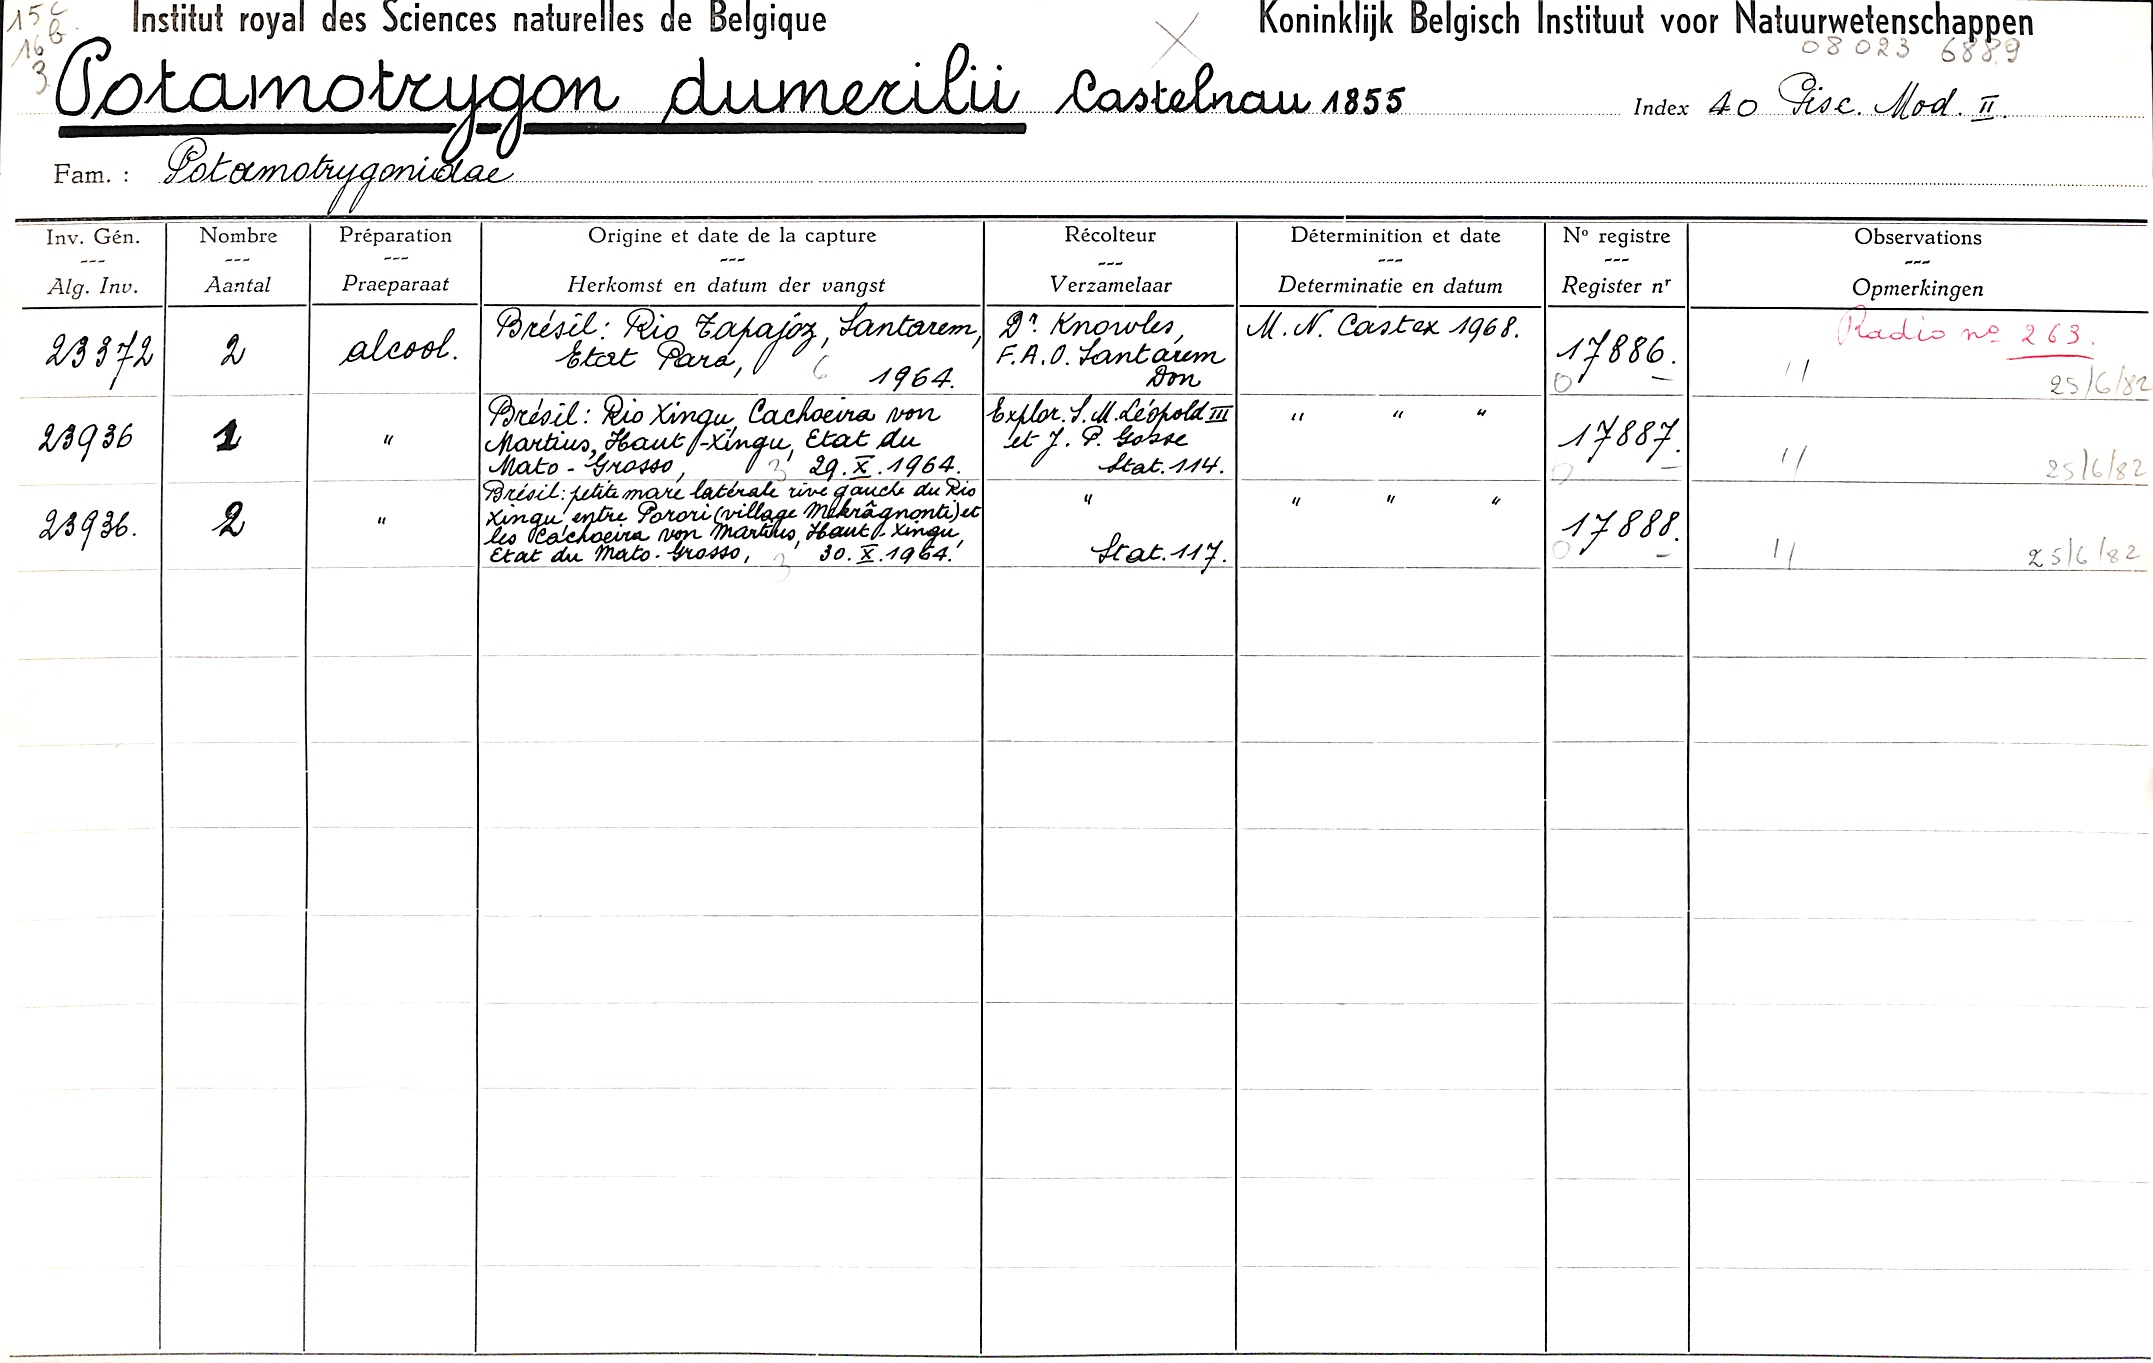 15c
16b
3
Institut royal des Sciences naturelles de Belgique
Koninklijk Belgisch Instituut voor Natuurwetenschappen
08 023 6889
Potamotrygon dumerilii Castelnau 1855
Index 40 Pisc. Mod. II.
Fam. : Potamotrygonidae
Inv. Gén.
---
Alg. Inv.
Nombre
---
Aantal
Préparation
---
Praeparaat
Origine et date de la capture
---
Herkomst en datum der vangst
Récolteur
---
Verzamelaar
Déterminition et date
---
Determinatie en datum
Nº registre
---
Register nr
Observations
---
Opmerkingen
23372
2
alcool.
Brésil: Rio Tapajoz, Santarem,
Etat Para, 6 1964.
Dr Knowles,
F.A.O. Santarem
Don
M. N. Castex 1968.
17886.
0 –
Radio nº 263.
" 25/6/82
23936
1
"
Brésil: Rio Xingu, Cachoeira von
Martius, Haut-Xingu, Etat du
Mato-Grosso, 3 29.X.1964.
Explor. S.M. Léopold III
et J. P. Gosse
Stat. 114.
" " "
17887.
0 –
" 25/6/82
23936.
2
"
Brésil: petite mare latérale rive gauche du Rio
Xingu entre Porori (village Mekrâgnonti) et
les Cachoeira von Martius, Haut-Xingu,
Etat du Mato-Grosso, 3 30.X.1964.
"
Stat. 117.
" " "
17888.
0 –
" 25/6/82